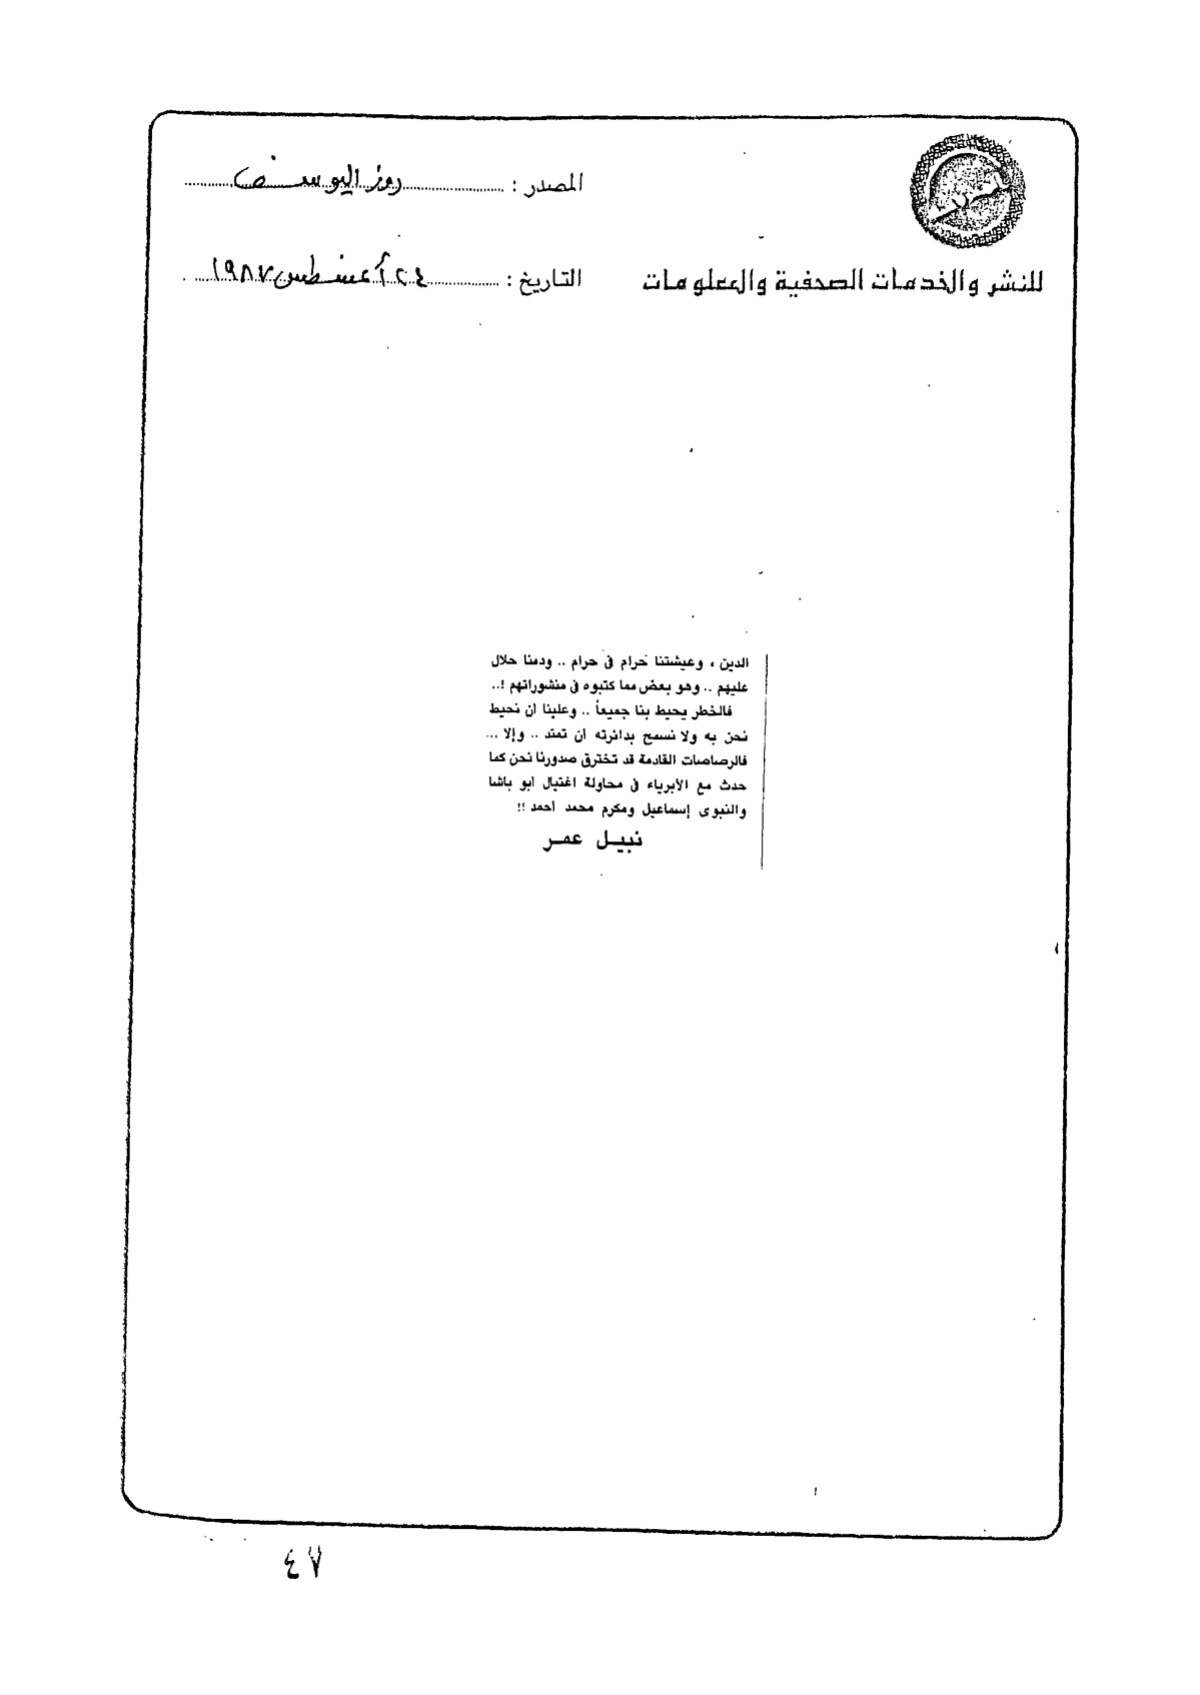 المصدر : روز اليوسف
للنشر والخدمات الصحفية والمعلومات
التاريخ : ٢٤ أغسطس ١٩٨٧
الدين ، وعيشتنا حرام فى حرام .. ودمنا حلال
عليهم .. وهو بعض مما كتبوه فى منشوراتهم !..
فالخطر يحيط بنا جميعاً .. وعلينا ان نحيط
نحن به ولا نسمح بدائرته ان تمتد .. وإلا ...
فالرصاصات القادمة قد تخترق صدورنا نحن كما
حدث مع الأبرياء فى محاولة اغتيال ابو باشا
والنبوى إسماعيل ومكرم محمد احمد !!
نبيـل عمـر
٤٧